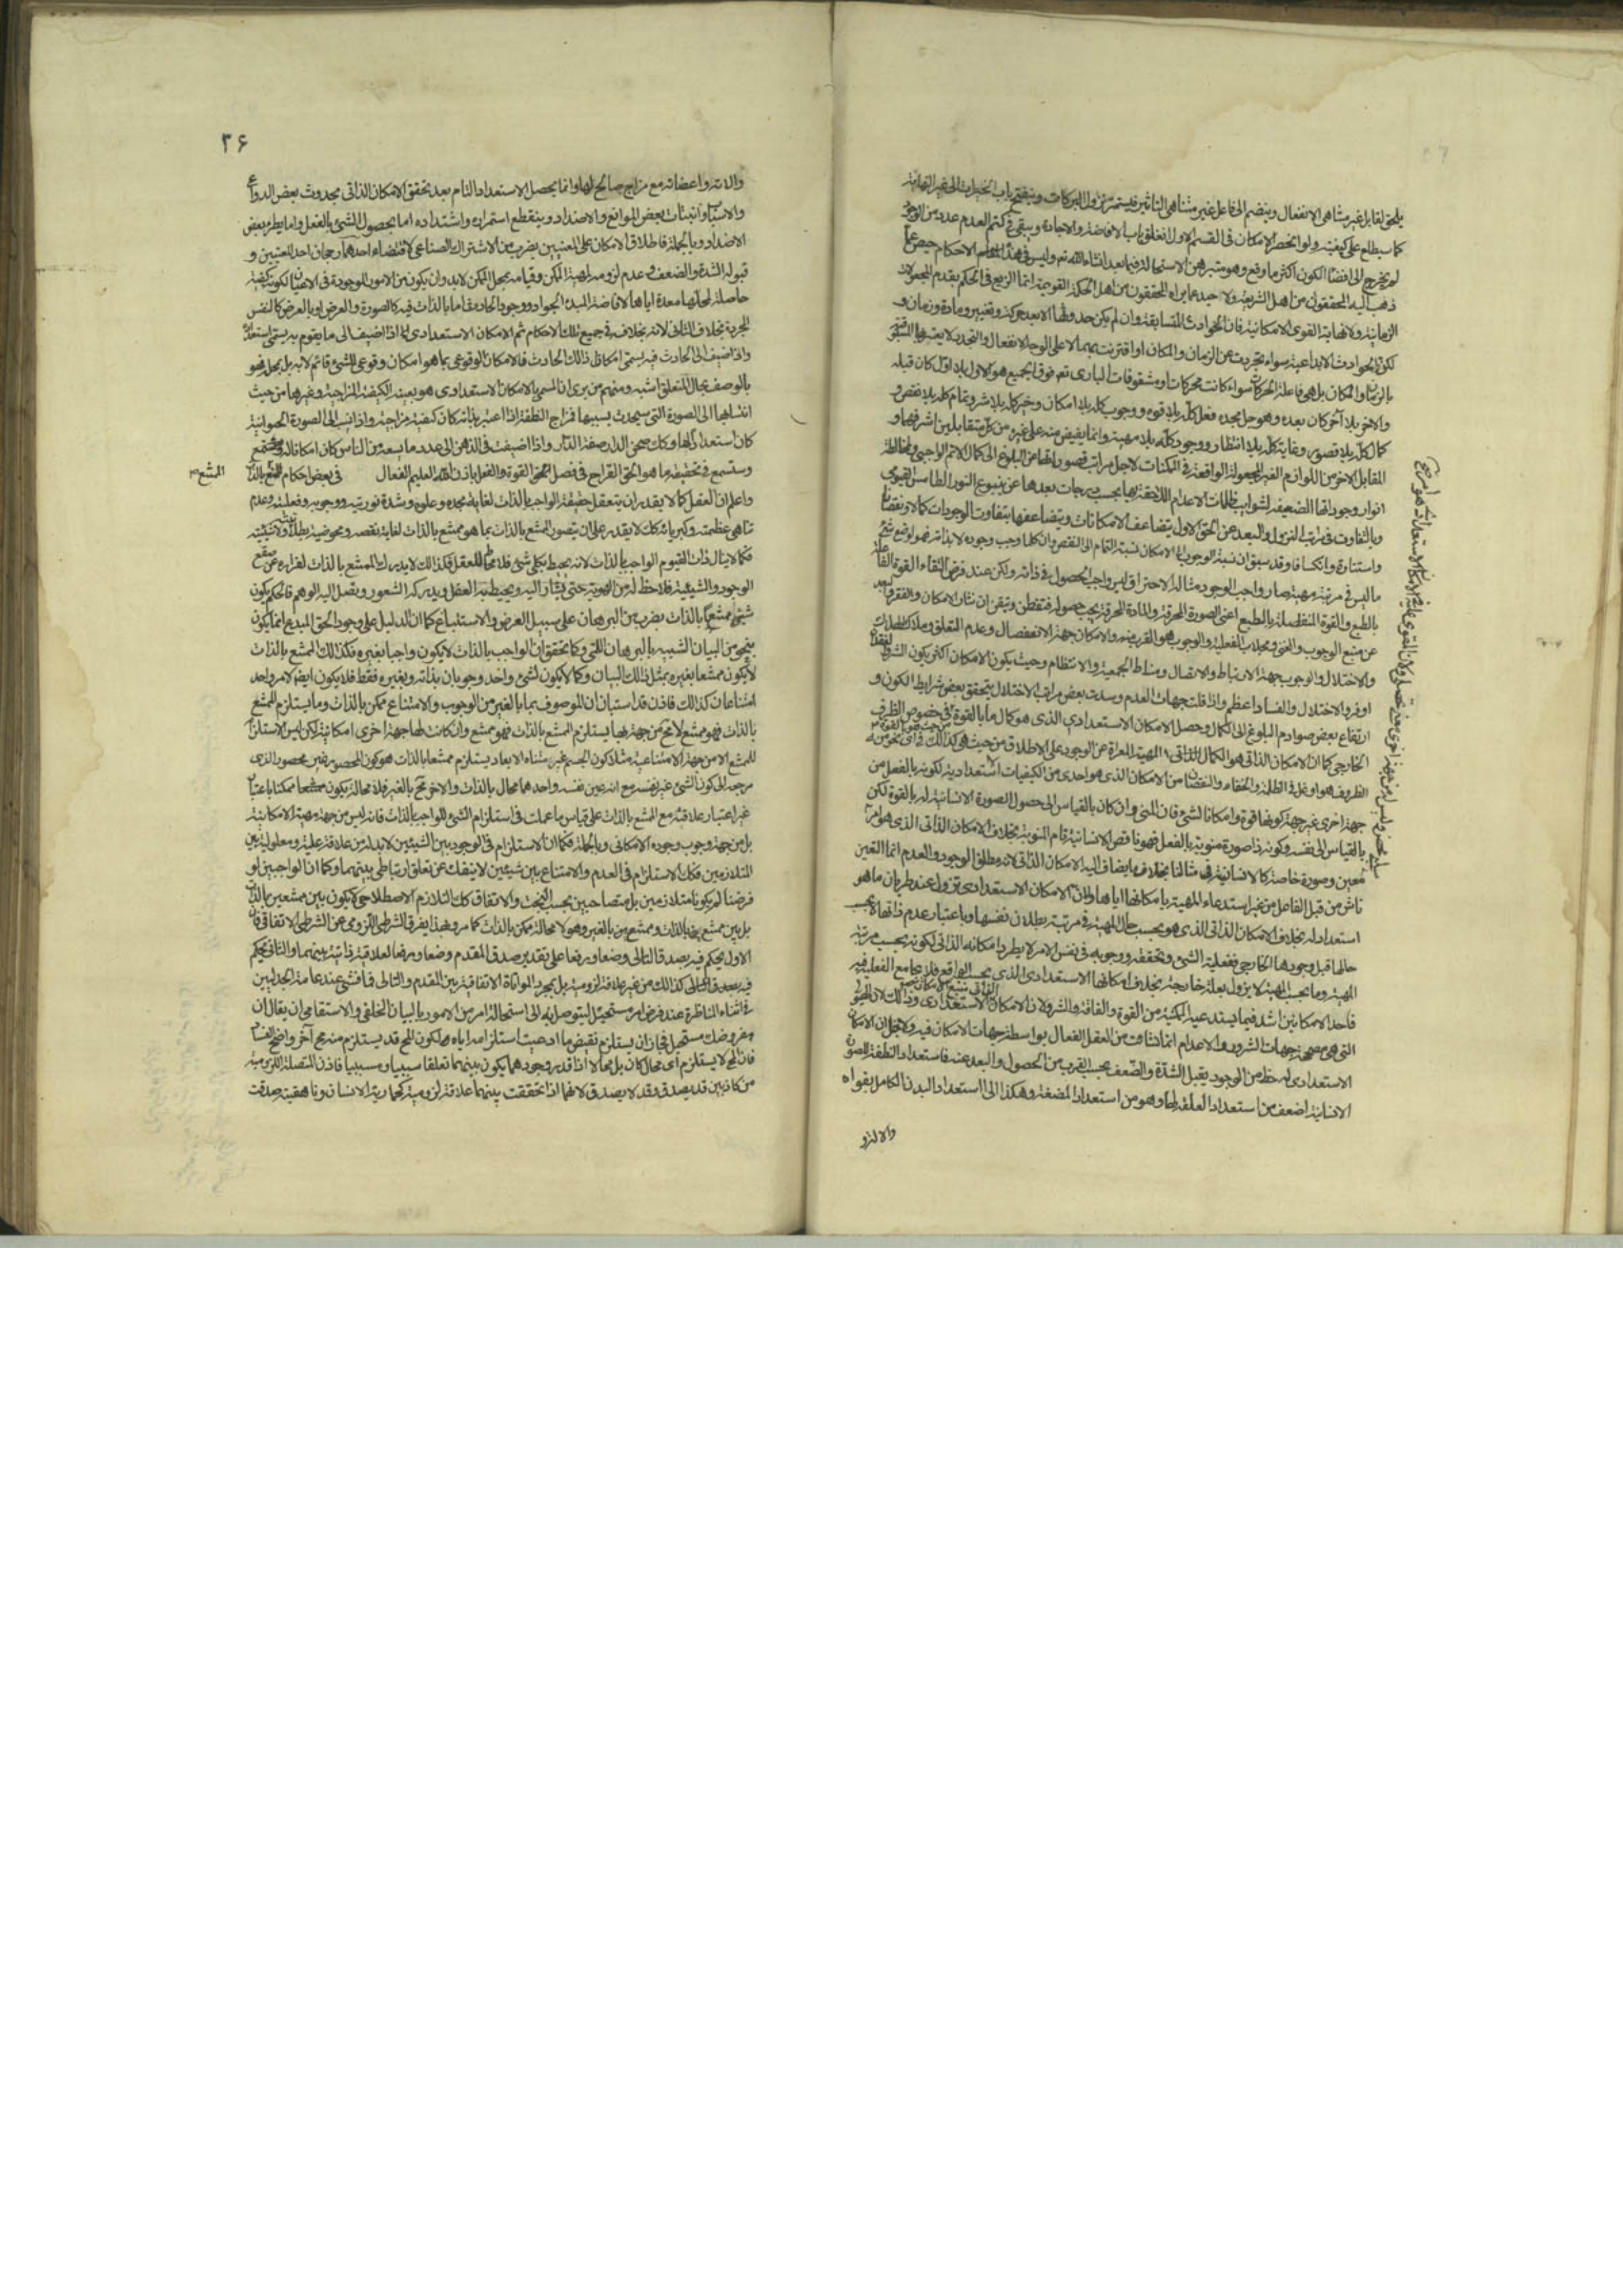 يلحق لقابل غير متناهى الانفعال وينضم الى فاعل غير متناهى التأثير فيستمر نزول البركات وينفتح باب الخيرات الى غير النهاية
كما سيطلع على كيفيته ولو انحصر الامكان فى القسم الاول لانغلق باب الافاضة والاجادة ويبقى فى كتم العدم عدد من الوجود
لم يخرج الى فضاء الكون اكثر مما وقع وهو ممتنع مبرهن الاستحالة فيما بعد انشاء الله تعم وليس فى هذا
ذهب اليه المحققون من اهل الشريعة ولا حيد عما يراه المحققون من اهل الحكمة القويمة انما الزيغ فى الحكم بقدم المجعولات
الزمانية ولا نهاية القوى الامكانية فان الحوادث المتسابقة وان لم يكن حدوثها الا بعد حركة وتغيير ومادة وزمان و
لكن الحوادث الابداعية سواء تجردت عن الزمان والمكان او اقترنت بهما لا على الوجه الانفعال والتجدد لا يعتريها السبق
بالزمان والمكان بل هى فاعلة الحركات سواء كانت محركات او مشوقات والبارى تعم فوق الجميع هو الاول بلا اول كان قبله
والاخر بلا آخر كان بعده وهو جل مجده فعل كله بلا قوة ووجوب كله بلا امكان وخير كله بلا شر وتمام كله بلا نقص و
كمال كله بلا قصور وغاية كله بلا انتظار ووجود كله بلا مهية وانما يفيض منه على غيره من كل متقابلين اشرفهما و
المقابل الاخر من اللوازم الغير المجعولة الواقعة فى الممكنات لاجل مراتب قصوراتها عن البلوغ الى كمال الاتم الواجبى ومخالطة
انوار وجوداتها الضعيفة لشوايب ظلمات الاعدام اللاحقة بها بحسب درجات بعدها عن ينبوع النور الطامس القيومى
وبالتفاوت فى مراتب النزول والبعد عن الحق الاول يتضاعف الامكانات وبتضاعفها بتفاوت الوجودات كمالا ونقصانا
واستنارة وانكسافا وقد سبق ان نسبة الوجوب الى الامكان نسبة التمام الى النقص وان كلما وجب وجوده لا بذاته فهو لو وضع شئ
ما ليس فى مرتبة مهيته صار واجب الوجود مثاله الاحتراق ليس واجب الحصول فى ذاته ولكن عند فرض التقاء القوة الفاعلة
بالطبع والقوة المنفعلة بالطبع اعنى الصورة المحرقة والمادة المحرقة يجب حصوله فتفطن وتيقن ان مثار الامكان والفقر هو البعد
عن منبع الوجوب والغنى ومجلاب الفعلية والوجوب هو القرب منه والامكان جهة الانفصال وعدم التعلق وملاك الهلاك
والاختلال والوجوب جهة الارتباط والاتصال ومناط الجمعية والانتظام وحيث يكون الامكان اكثر يكون الشر
اوفر والاختلال والفساد اعظم واذا قلت جهات العدم وسدت بعض مراتب الاختلال يتحقق بعض شرايط الكون و
ارتفاع بعض صوادم البلوغ الى الكمال وحصل الامكان الاستعدادى الذى هو كمال ما بالقوة فى خصوص الظرف
الخارجى كما ان الامكان الذاتى هو الكمال المهية المعراة عن الوجود على الاطلاق من حيث هى كذلك فى اى نحو من
الظروف هو اوغل فى الظلمة والخفاء والنقصان من الامكان الذى هو احدى من الكيفيات الاستعدادية لكونه بالفعل من
جهة اخرى غير جهة كونها قوة وامكانا لشئ فان المنى وان كان بالقياس الى حصول الصورة الانسانية له بالقوة لكن
بالقياس الى نفسه وكونه ذا صورة منوية بالفعل فهو ناقص الانسانية تام المنوية بخلاف الامكان الذاتى الذى هو امر
لمعين وصورة خاصة كالانسانية فى مثالنا بخلاف ما يضاف اليه الامكان الذاتى لانه مطلق الوجود والعدم انما التعين
ناش من قبل الفاعل من غير استدعاء المهية بامكانها اياها ولان الامكان الاستعدادى يزول عند طريان ما هو
استعداد له بخلاف الامكان الذاتى الذى هو بحسب حال المهية فى مرتبة بطلان نفسها وباعتبار عدم ذاتها لا بحسب
حالها قبل وجودها الخارجى ففعلية الشئ وتحققه ووجوبه فى نفس الامر لا يطرد امكانه الذاتى لكونه بحسب مرتبة
المهية وما بحسب المهية لا يزول بعلة خارجة بخلاف امكانها الاستعدادى الذى بحسب الواقع فلا يجامع الفعلية فيه
فاحد الامكانين اشد فيما يستدعيه الممكنية من القوة والفاقة والشر ولان الامكان الاستعدادى
التى هى مصححة جهات الشرور والاعدام انما نشأت من العقل الفعال بواسطة جهات الامكان فيه ولاجل ان الامكان
الاستعدادى له حظ من الوجود يقبل الشدة والضعف بحسب القرب من الحصول والبعد عنه فاستعداد النطفة للصورة
الانسانية اضعف من استعداد العلقة لها وهو من استعداد المضغة وهكذا الى استعداد البدن الكامل بقواه
والآته و
٢۶
والاته واعضائه مع مزاج صالح لها وانما يحصل الاستعداد التام بعد تحقق الامكان الذاتى بحدوث بعض الدواعى
والاسباب وانبتات بعض الموانع والاضداد وينقطع استمراره واشتداده اما بحصول الشئ بالفعل واما بطرو بعض
الاضداد وبالجملة فاطلاق الامكان على المعنيين بضرب من الاشتراك الصناعى لاقتضاء احدهما رجحان احد الجنبين و
قبوله الشدة والضعف وعدم لزومه لمهية الممكن وقيامه بمحل الممكن لا به وان يكون من الامور الموجودة فى الاعيان لكونه كيفية
حاصلة لمحلها معدة اياها لافاضة المبدء الجواد وجود الحادث اما بالذات فيه كالصورة والعرض او بالعرض كالنفس
المجردة بخلاف الثانى لانه بخلافه فى جميع تلك الاحكام ثم الامكان الاستعدادى اذا اضيف الى ما يقوم به يسمى استعدادا
واذا اضيف الى الحادث فيه يسمى امكان ذلك الحادث فالامكان الوقوعى بما هو امكان وقوعى للشئ قائم لا به بل بمحله فهو
بالوصف بحال المتعلق اشبه ومنهم من يرى ان المسمى بالامكان الاستعدادى هو بعينه الكيفية المزاجية وغيرها من حيث
انتسابها الى الصورة التى سيحدث بسببها فمزاج النطفة اذا اعتبر بذاته كان كيفية مزاجية واذا نسب الى الصورة الحيوانية
كان استعدادا لها وكك صحن الدار صفة الدار واذا اضيفت فى الذهن الى عدد ما يسعه من الناس كان امكانا له
وستسمع فى تحقيقه ما هو الحق القراح فى فصل القوة والفعل باذن الله العليم الفعال فى بعض احكام الممتنع بالذات
الممتنع
واعلم ان العقل كما لا يقدر ان يتعقل حقيقة الواجب بالذات لغاية مجده وعلوه وشدة نوريته ووجوبه وفعليته وعدم
تناهى عظمته وكبريائه كك لا يقدر على ان يتصور الممتنع بالذات بما هو ممتنع بالذات لغاية نقصه ومحوضة بطلانه ولاشيئيته
فكما لا ينال ذات القيوم الواجب بالذات لانه محيط بكل شئ فلا يحاط للعقل فكذلك لا يدرك الممتنع بالذات لفراره عن صقع
الوجود والشيئية فلا حظ له من الهوية حتى يشار اليه ويحيط به العقل ويدركه الشعور ويصل اليه الوهم فالحكم بكون
شئ ممتنعا بالذات بضرب من البرهان على سبيل العرض والاستتباع كما ان الدليل على وجود الحق المبدع انما يكون
بنحو من البيان الشبيه بالبرهان اللمى وكما تحقق ان الواجب بالذات لا يكون واجبا بغيره فكذلك الممتنع بالذات
لا يكون ممتنعا بغيره بمثل ذلك البيان وكما لا يكون لشئ واحد وجوبان بذاته وبغيره فقط فلا يكون ايضا لامر واحد
امتناعان كذلك فاذن قد استبان ان الموصوف بما بالغير من الوجوب والامتناع ممكن بالذات وما يستلزم الممتنع
بالذات فهو ممتنع لا محة من جهة بها يستلزم الممتنع بالذات فهو ممتنع وان كانت لها جهة اخرى امكانية لكن ليس الاستلزام
للممتنع الا من جهة الامتناعية مثلا كون الجسم غير متناه الابعاد يستلزم ممتنعا بالذات هو كون المحصور غير محصور الذى
مرجعه الى كون الشئ غير نفسه مع انه عين نفسه واحدهما محال بالذات والاخر مح بالغير فلا محالة يكون ممكنا باعتبار
غير اعتبار علاقته مع الممتنع بالذات على قياس ما علمت فى استلزام الشئ للواجب بالذات فانه ليس من جهة مهيته الامكانية
بل من جهة وجوب وجوده الامكانى وبالجملة فكما ان الاستلزام فى الوجود بين الشيئين لا بد له من علاقة علية ومعلولية بين
المتلازمين فكك الاستلزام فى العدم والامتناع بين شيئين لا ينفك عن تعلق ارتباطى بينهما وكما ان الواجبين لو
فرضنا لم يكونا متلازمين بل متصاحبين بحسب البخت والاتفاق كك التلازم الاصطلاحى لا يكون بين ممتنعين بالذات
بل بين ممتنع بالذات وممتنع بالغير وهو لا محالة ممكن بالذات كما مر وبهذا يفرق الشرطى اللزومى عن الشرطى الاتفاقى فان
الاول يحكم فيه بصدق التالى وضعا ورفعا على تقدير صدق المقدم وضعا ورفعا لعلاقة ذاتية بينهما والثانى يحكم
فيه بصدق التالى كذلك من غير علاقة لزومية بل بمجرد الموافاة الاتفاقية بين المقدم والتالى فما فشى عند عامة الجدليين
فى اثناء المناظرة عند فرض امر مستحيل ليتوصل به الى استحالة امر من الامور بالبيان الخلفى والاستقامى ان يقال ان
مفروضك مستحيل فجاز ان يستلزم نقيض ما ادعيت استلزامه اياه لكون المح قد يستلزم منه مح آخر واضح الفساد
فان المح لا يستلزم اى محال كان بل محالا اذا قدر وجودهما يكون بينهما تعلقا سببيا ومسببيا فاذن المتصلة اللزومية
من كاذبين قد يصدق وقد لا يصدق لانهما اذا تحققت بينهما علاقة لزومية كحمارية الانسان وناهقيته صدقت